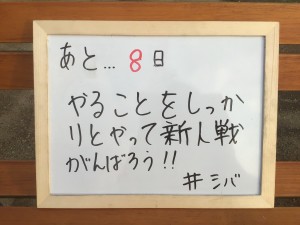 あと… 8日
やることをしっか
りとやって新人戦
がんばろう!!
#シバ